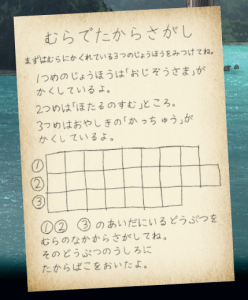 むらでたからさがし
まずはむらにかくれている3つのじょうほうをみつけてね。
1つめのじょうほうは「おじぞうさま」が
かくしているよ。
2つめは「ほたるのすむ」ところ。
3つめはおやしきの「かっちゅう」が
かくしているよ。
①
②
③
①② ③のあいだにいるどうぶつを
むらのなかからさがしてね。
そのどうぶつのうしろに
たからばこをおいたよ。